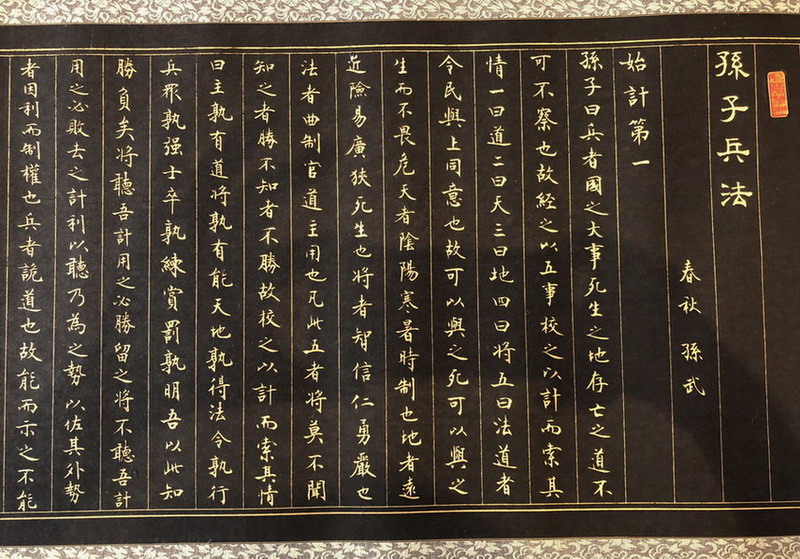 孫子兵法
春秋 孫武
始計第一
孫子曰兵者國之大事死生之地存亡之道不
可不察也故經之以五事校之以計而索其
情一曰道二曰天三曰地四曰將五曰法道者
令民與上同意也故可以與之死可以與之
生而不畏危天者陰陽寒暑時制也地者遠
近險易廣狹死生也將者智信仁勇嚴也
法者曲制官道主用也凡此五者將莫不聞
知之者勝不知者不勝故校之以計而索其情
曰主孰有道將孰有能天地孰得法令孰行
兵眾孰强士卒孰練賞罰孰明吾以此知
勝負矣將聽吾計用之必勝留之將不聽吾計
用之必敗去之計利以聽乃為之勢以佐其外勢
者因利而制權也兵者詭道也故能而示之不能